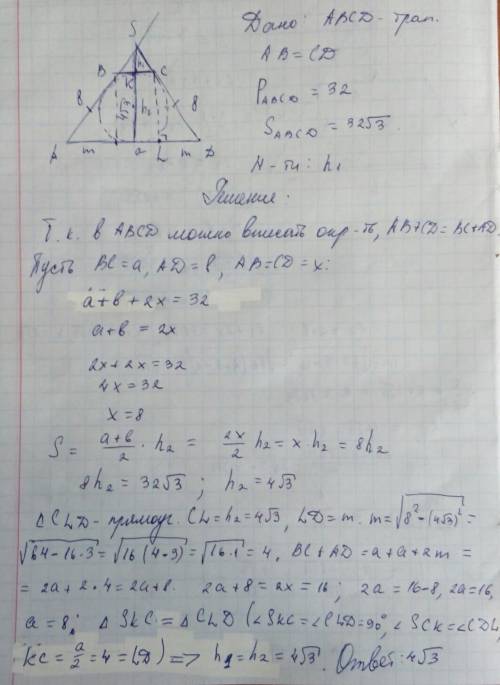 S
Дано: ABCD - трап.
AB = CD
P ABCD = 32
S ABCD = 32√3
Н-ти: h₁
B K C
8 4√3 h₂ 8
A m a L m D
Решение.
Т.к. в ABCD можно вписать окр-ть, AB+CD = BC+AD.
Пусть BC = a, AD = b, AB = CD = x:
a + b + 2x = 32
a+b = 2x
2x + 2x = 32
4x = 32
x = 8
S = a+b/2 · h₂ = 2x/2 h₂ = x · h₂ = 8h₂
8h₂ = 32√3 ; h₂ = 4√3
△ CLD - прямоуг. CL = h₂ = 4√3, LD = m. m = √8² - (4√3)² =
√64 - 16·3 = √16(4-3) = √16·1 = 4, BC + AD = a + a + 2m =
= 2a + 2·4 = 2a + 8. 2a + 8 = 2x = 16 ; 2a = 16-8, 2a = 16,
a = 8. △ SKC = △ CLD (∠SKC = ∠CLD = 90°, ∠SCK = ∠CDL,
KC = a/2 = 4 = LD) => h₁ = h₂ = 4√3. Ответ: 4√3